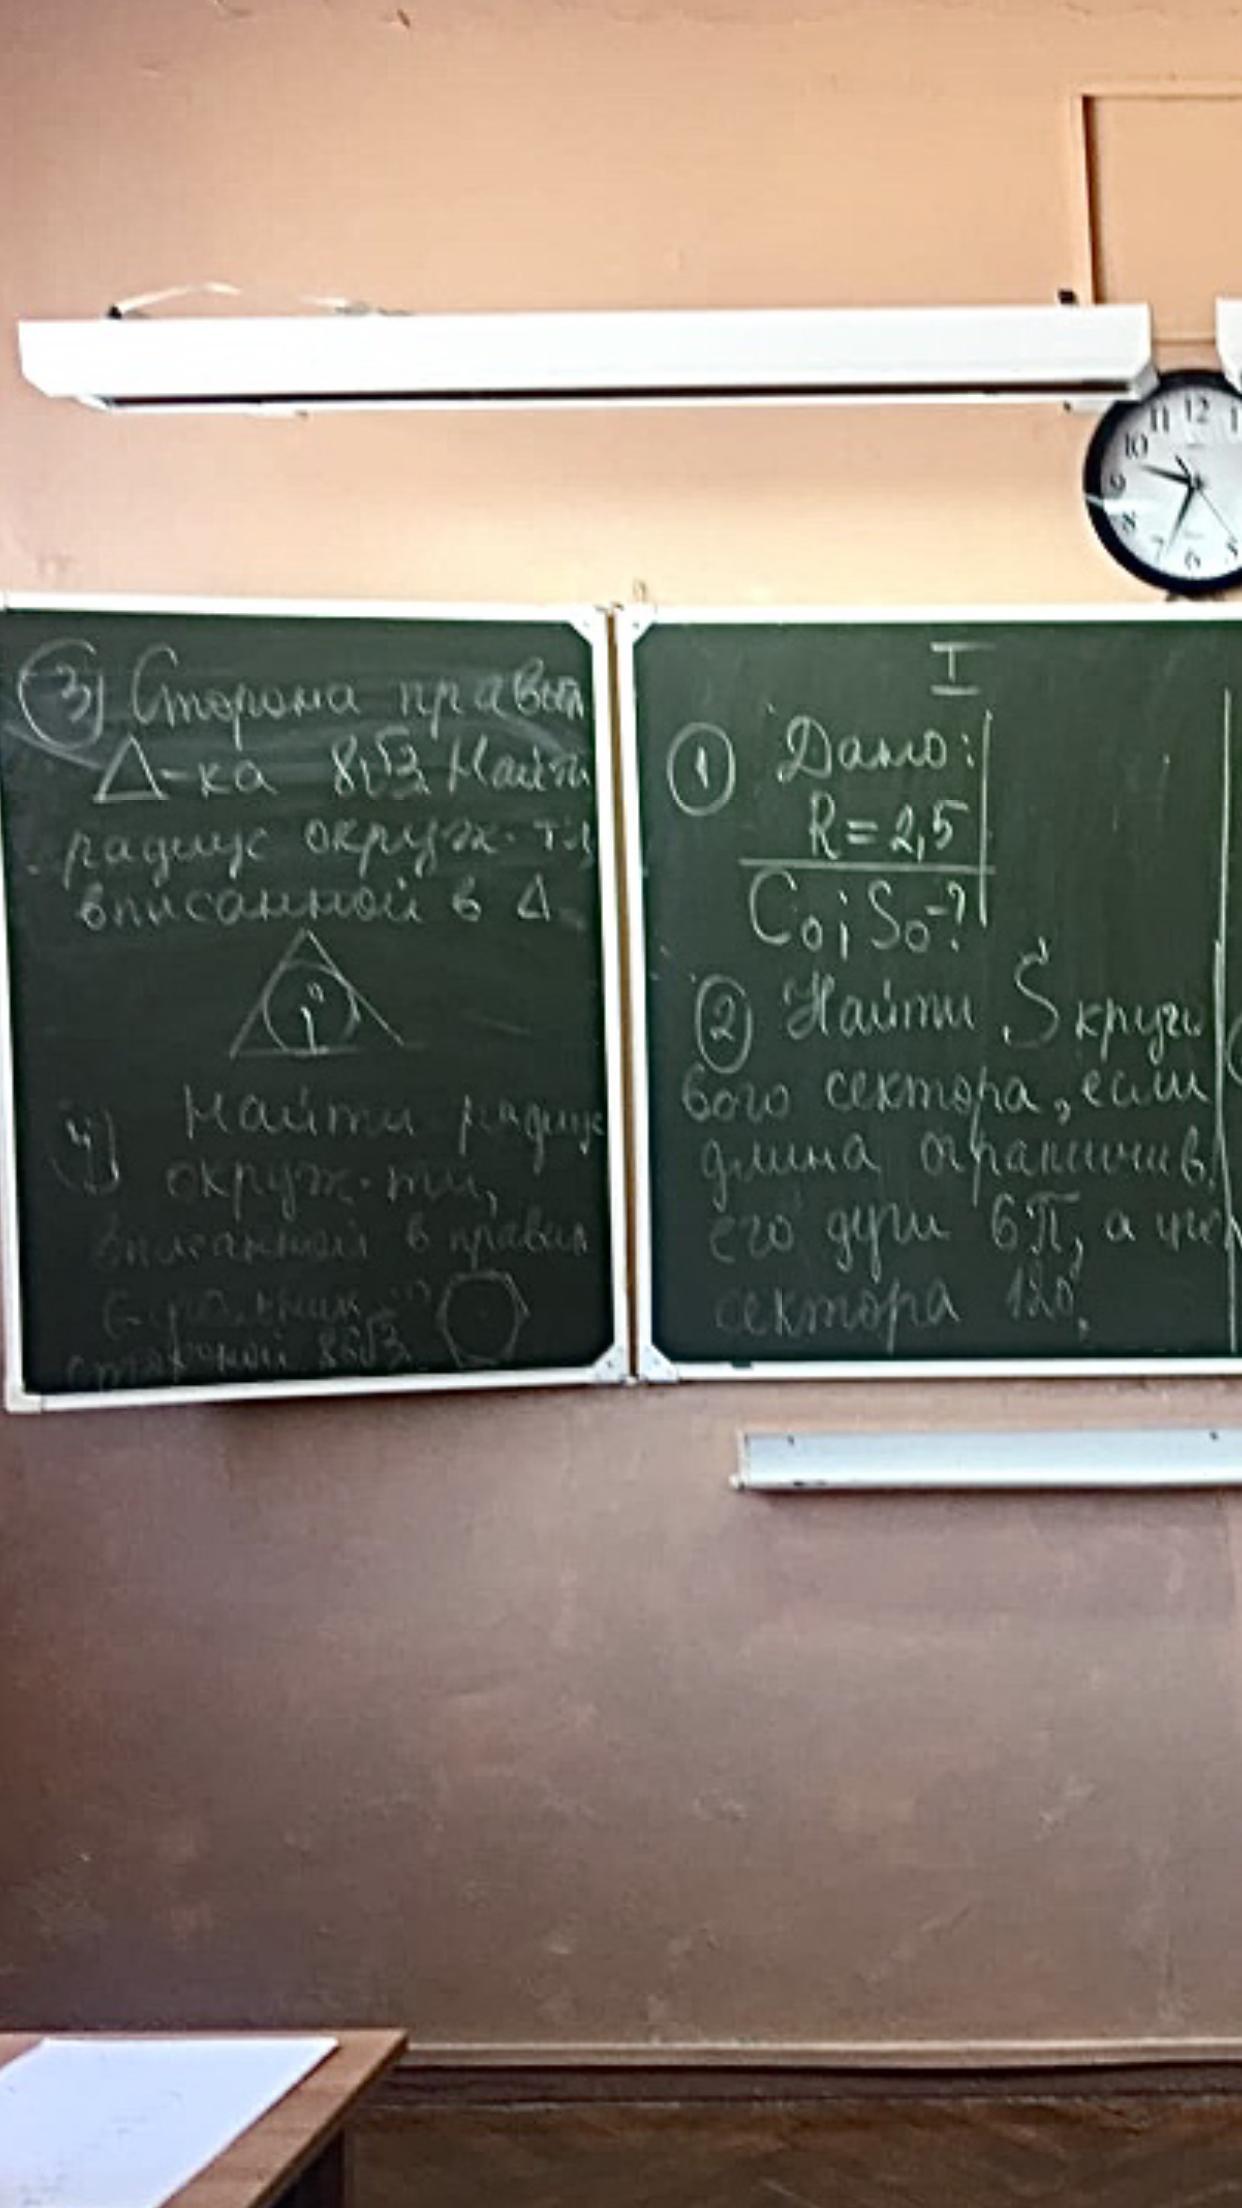 ③ Сторона правил
Δ-ка 8√3. Найти
радиус окруж-ти,
вписанной в Δ.
4) Найти радиус
окруж-ти,
вписанной в правил
стороной 8√3
I
① Дано:
R = 2,5
C₀; S₀ -?
② Найти S круго
вого сектора, если
длина ограничив.
его дуги 6π, а
сектора 120°.
11 12 1
10
9
8
7 6 5